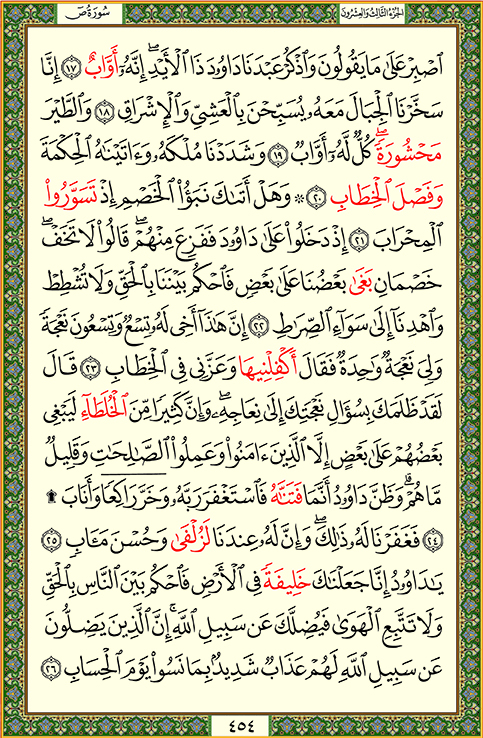 سُورَةُ صٓ
الجُزءُ الثَّالِثُ وَالعِشرُونَ
ٱصۡبِرۡ عَلَىٰ مَا يَقُولُونَ وَٱذۡكُرۡ عَبۡدَنَا دَاوُۥدَ ذَا ٱلۡأَيۡدِۖ إِنَّهُۥٓ أَوَّابٌ ١٧ إِنَّا
سَخَّرۡنَا ٱلۡجِبَالَ مَعَهُۥ يُسَبِّحۡنَ بِٱلۡعَشِيِّ وَٱلۡإِشۡرَاقِ ١٨ وَٱلطَّيۡرَ
مَحۡشُورَةٗۖ كُلّٞ لَّهُۥٓ أَوَّابٞ ١٩ وَشَدَدۡنَا مُلۡكَهُۥ وَءَاتَيۡنَٰهُ ٱلۡحِكۡمَةَ
وَفَصۡلَ ٱلۡخِطَابِ ٢٠ ۞ وَهَلۡ أَتَىٰكَ نَبَؤُاْ ٱلۡخَصۡمِ إِذۡ تَسَوَّرُواْ
ٱلۡمِحۡرَابَ ٢١ إِذۡ دَخَلُواْ عَلَىٰ دَاوُۥدَ فَفَزِعَ مِنۡهُمۡۖ قَالُواْ لَا تَخَفۡۖ
خَصۡمَانِ بَغَىٰ بَعۡضُنَا عَلَىٰ بَعۡضٖ فَٱحۡكُم بَيۡنَنَا بِٱلۡحَقِّ وَلَا تُشۡطِطۡ
وَٱهۡدِنَآ إِلَىٰ سَوَآءِ ٱلصِّرَٰطِ ٢٢ إِنَّ هَٰذَآ أَخِي لَهُۥ تِسۡعٞ وَتِسۡعُونَ نَعۡجَةٗ
وَلِيَ نَعۡجَةٞ وَٰحِدَةٞ فَقَالَ أَكۡفِلۡنِيهَا وَعَزَّنِي فِي ٱلۡخِطَابِ ٢٣ قَالَ
لَقَدۡ ظَلَمَكَ بِسُؤَالِ نَعۡجَتِكَ إِلَىٰ نِعَاجِهِۦۖ وَإِنَّ كَثِيرٗا مِّنَ ٱلۡخُلَطَآءِ لَيَبۡغِي
بَعۡضُهُمۡ عَلَىٰ بَعۡضٍ إِلَّا ٱلَّذِينَ ءَامَنُواْ وَعَمِلُواْ ٱلصَّٰلِحَٰتِ وَقَلِيلٞ
مَّا هُمۡۗ وَظَنَّ دَاوُۥدُ أَنَّمَا فَتَنَّٰهُ فَٱسۡتَغۡفَرَ رَبَّهُۥ وَخَرَّۤ رَاكِعٗاۤ وَأَنَابَ ۩
٢٤ فَغَفَرۡنَا لَهُۥ ذَٰلِكَۖ وَإِنَّ لَهُۥ عِندَنَا لَزُلۡفَىٰ وَحُسۡنَ مَـَٔابٖ ٢٥
يَٰدَاوُۥدُ إِنَّا جَعَلۡنَٰكَ خَلِيفَةٗ فِي ٱلۡأَرۡضِ فَٱحۡكُم بَيۡنَ ٱلنَّاسِ بِٱلۡحَقِّ
وَلَا تَتَّبِعِ ٱلۡهَوَىٰ فَيُضِلَّكَ عَن سَبِيلِ ٱللَّهِۚ إِنَّ ٱلَّذِينَ يَضِلُّونَ
عَن سَبِيلِ ٱللَّهِ لَهُمۡ عَذَابٞ شَدِيدُۢ بِمَا نَسُواْ يَوۡمَ ٱلۡحِسَابِ ٢٦
٤٥٤